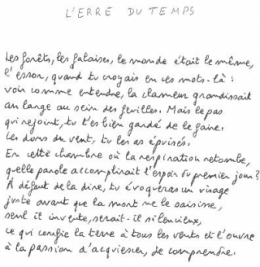 L'ERRE DU TEMPS
Les forêts, les falaises, le monde était le même,
l'essor, quand tu croyais en ces mots-là :
voir comme entendre, la clameur grandissait
au large au sein des feuilles. Mais le pas
qui rejoint, tu t'es bien gardé de le faire.
Les dons du vent, tu les as épuisés.
En cette chambre où la respiration retombe,
quelle parole accomplirait l'espoir du premier jour ?
À défaut de la dire, tu évoqueras un visage
juste avant que la mort ne le saisisse,
seul il invente, serait-il silencieux,
ce qui confie la terre à tous les vents et l'ouvre
à la passion d'acquiescer, de comprendre.